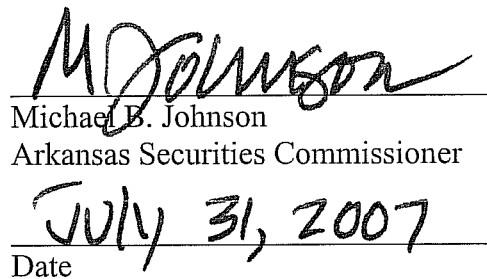 M Johnson
Michael B. Johnson
Arkansas Securities Commissioner
July 31, 2007
Date